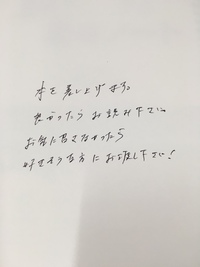 本を差し上げます。
良かったらお読み下さい
お気に召さなかったら
好きそうな方にお渡し下さい!